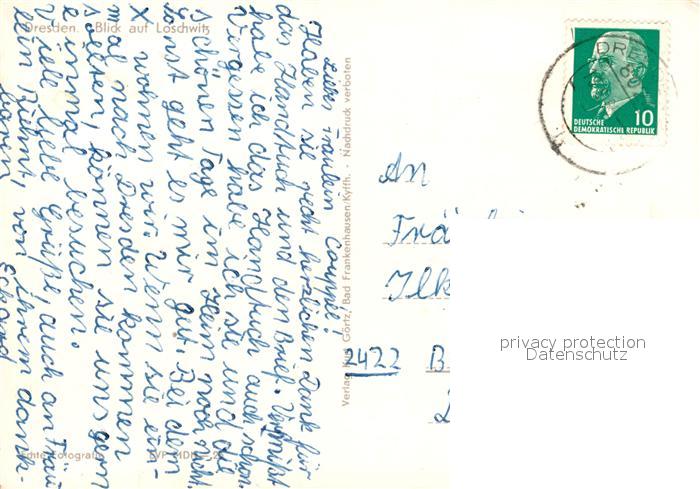 Dresden. Blick auf Loschwitz
Liebes Fräulein
Haben sie recht herzlichen Dank für
das Handtuch und den Brief. Vermißt
habe ich das Handtuch auch schon.
Vergessen habe ich sie und die
schönen Tage im Heim noch nicht.
Sonst geht es mir gut. Bei dem
X wohnen wir. Wenn sie ein-
mal nach Dresden kommen
sollten, können sie uns gern
einmal besuchen.
Viele liebe Grüße, auch an Frau
lein Kühnt, von ihrem dank-
baren
Eckard
Echte Fotografie
Verlag Görtz, Bad Frankenhausen/Kyffh. - Nachdruck verboten
DRE
DEUTSCHE
DEMOKRATISCHE REPUBLIK
10
An
Frä
Ilk
2422 B
privacy protection
Datenschutz